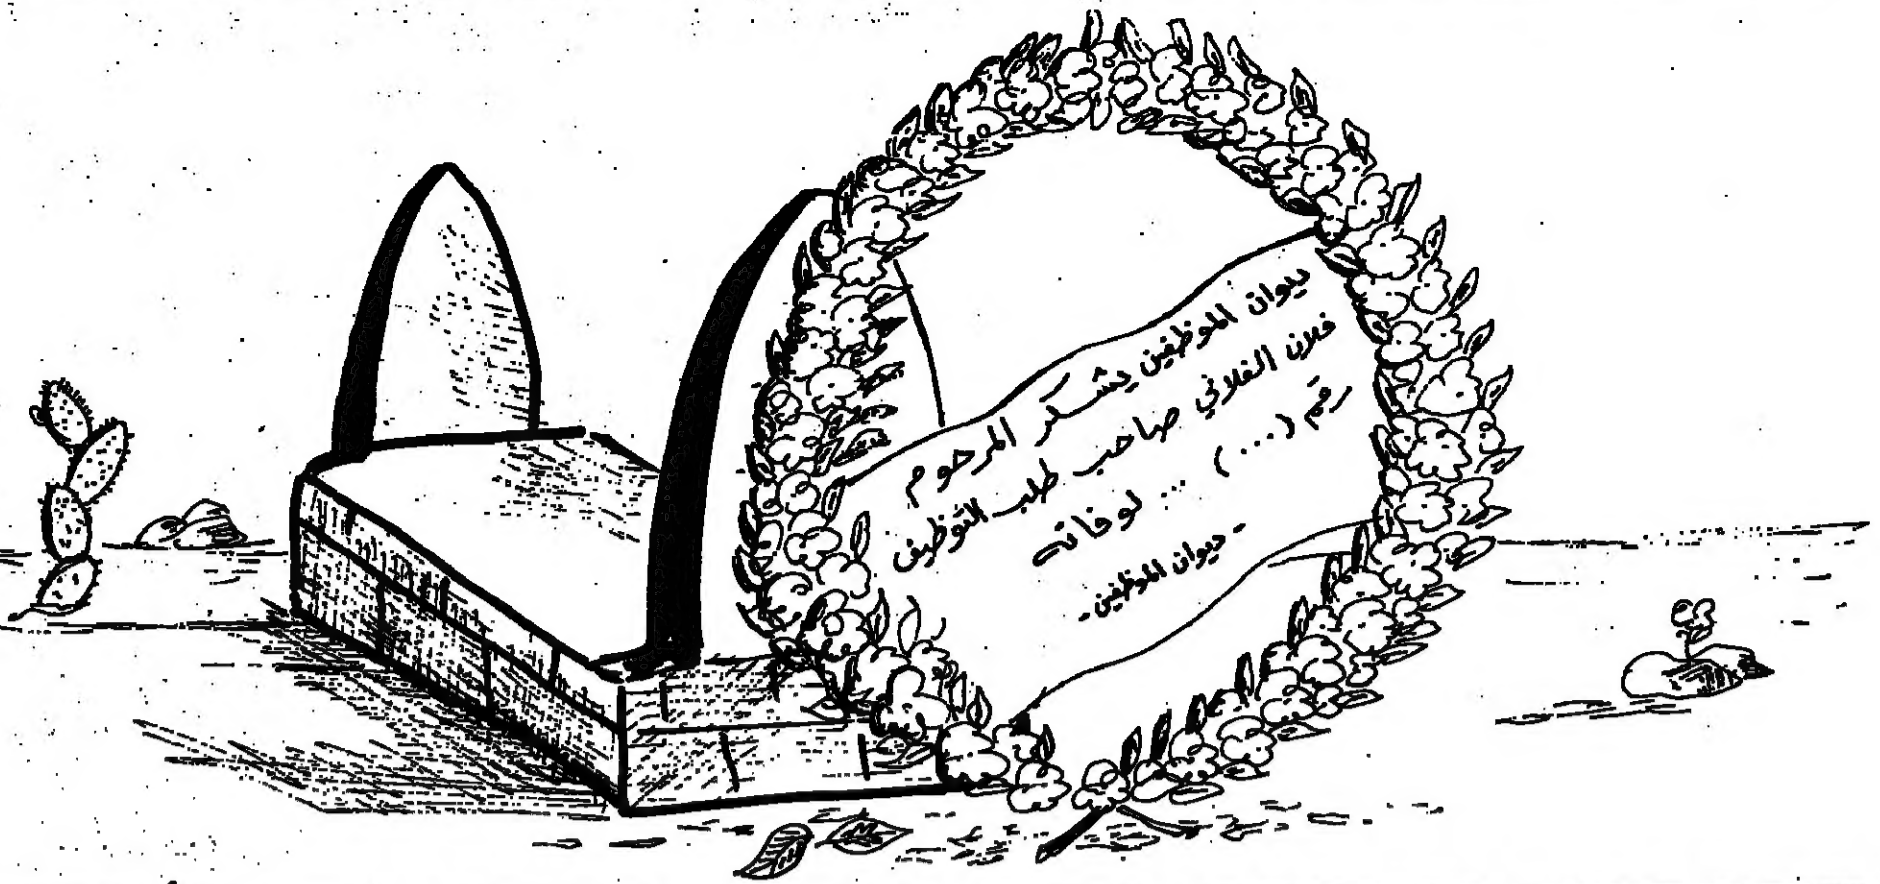 ديوان الموظفين يشكر المرحوم
فلان الفلاني صاحب طلب التوظيف
رقم (...) ... لوفاته
- ديوان الموظفين -